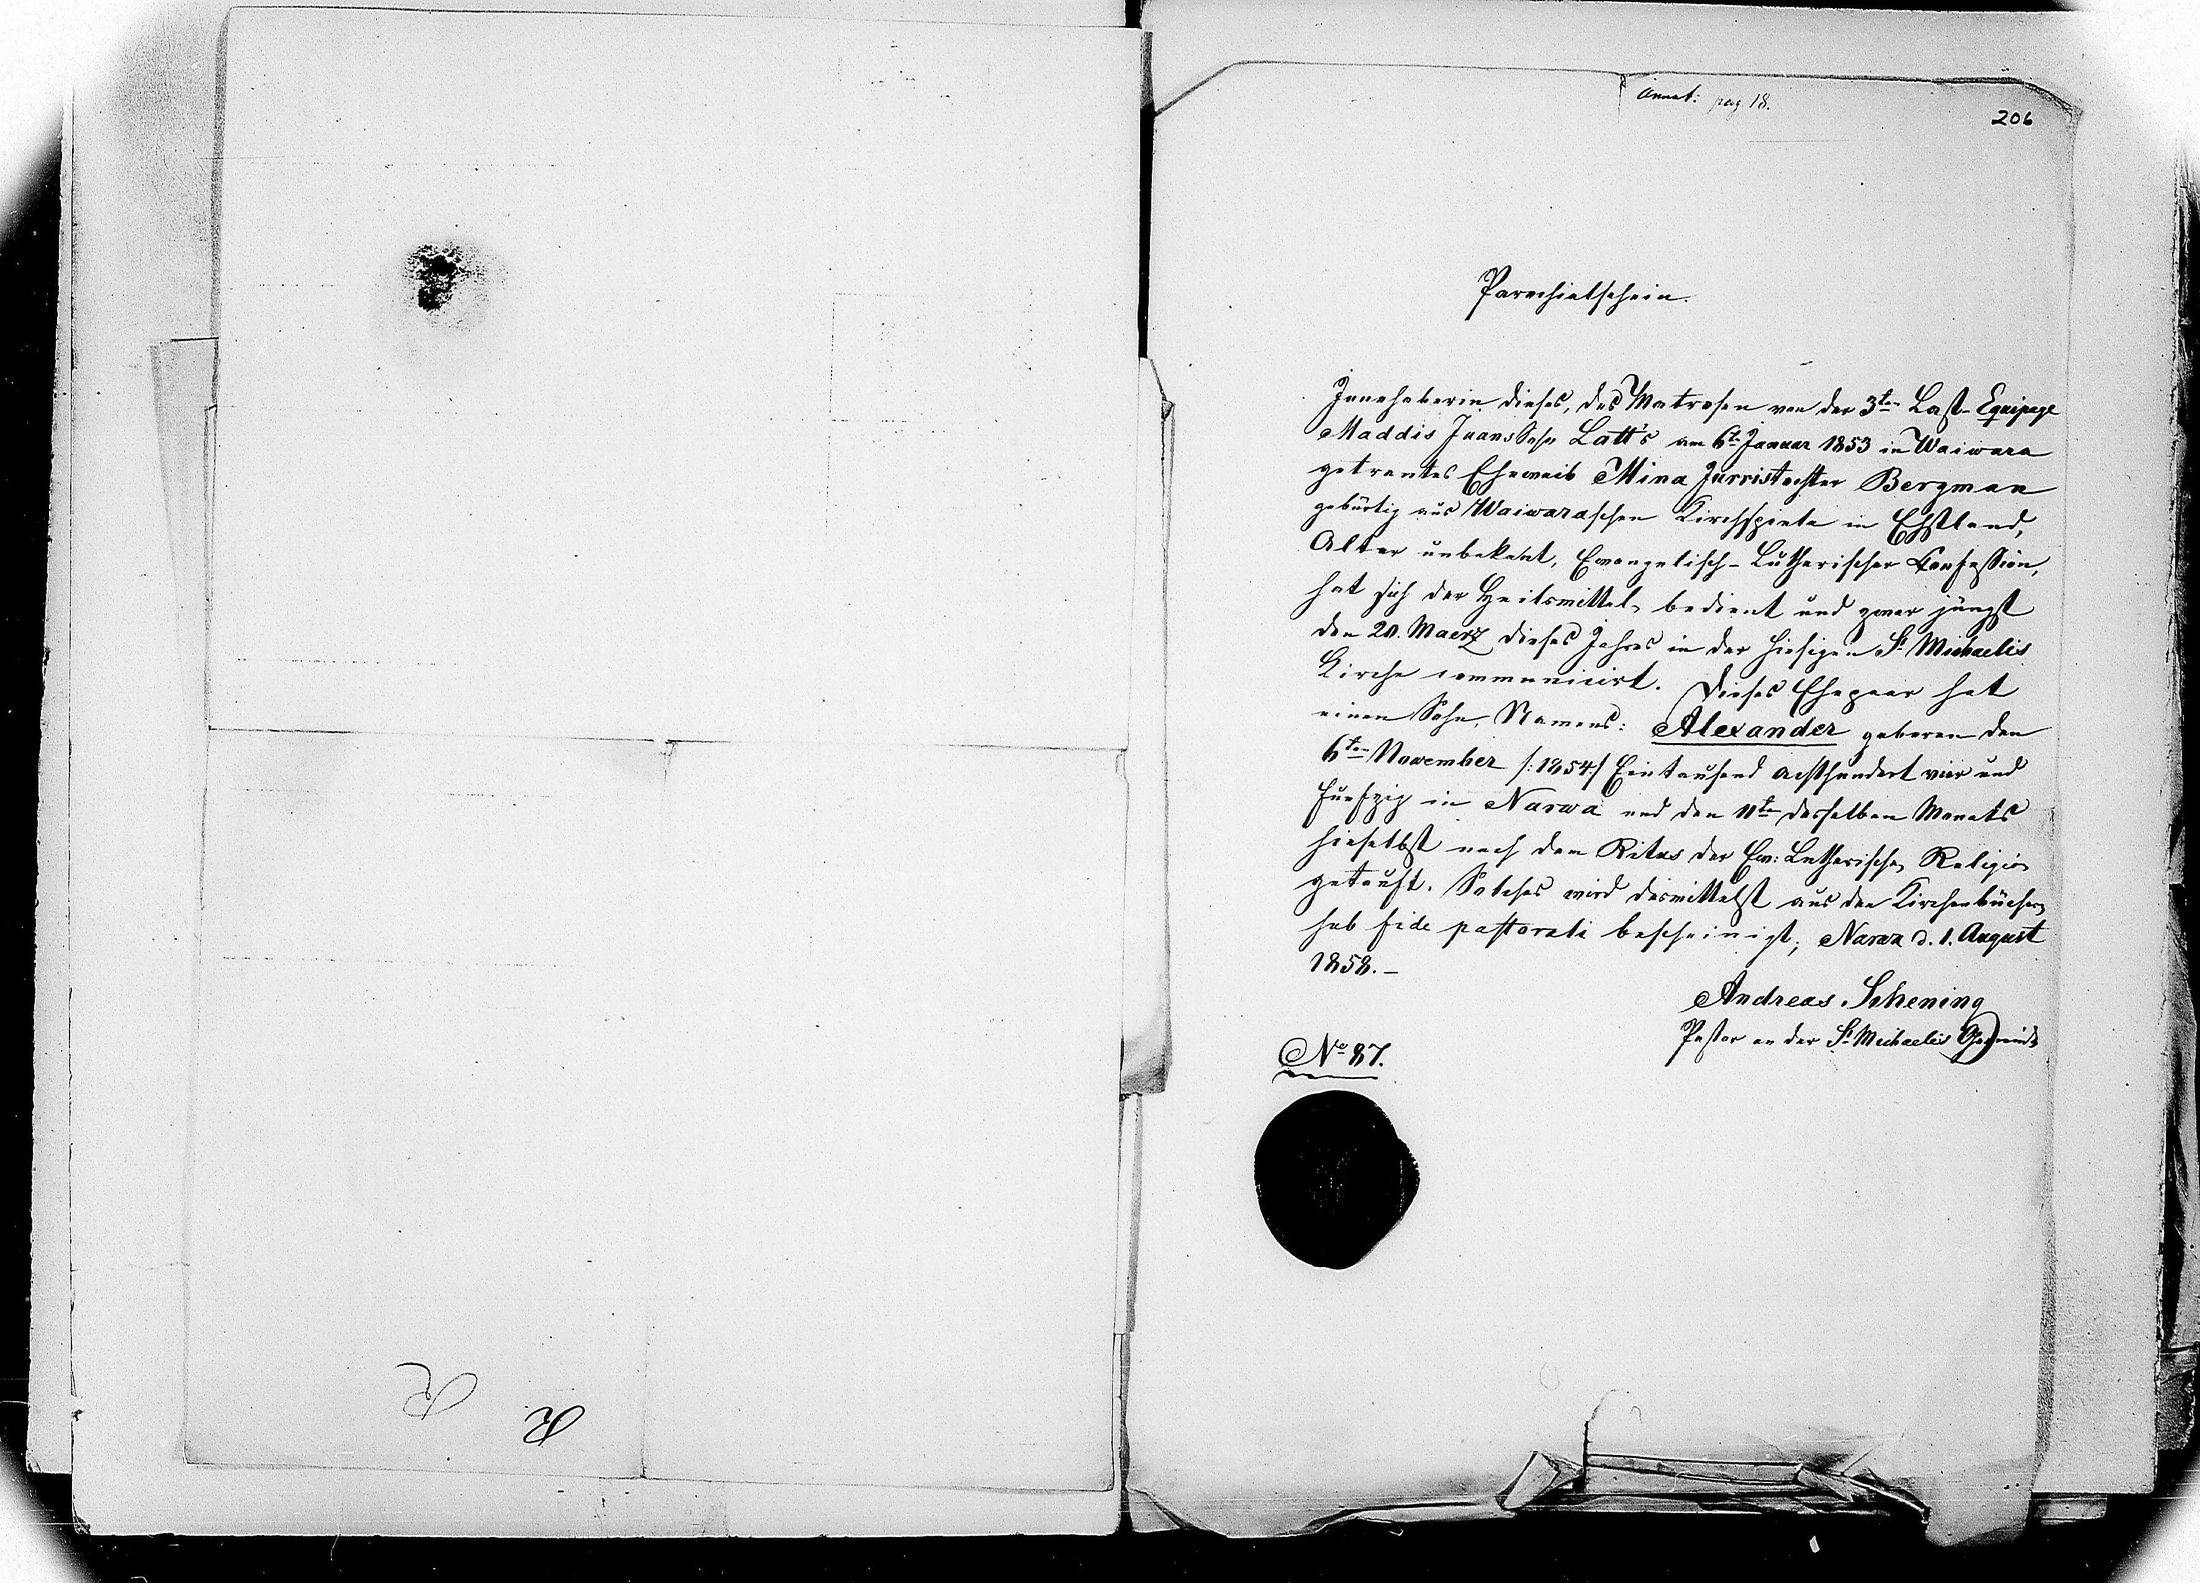 Annot: pag 18.
206
Parochialschein.
Innehaberin dieses, des Matrosen von der 3ten Last-Equipage
Maddis Juans Sohn Latt's am 6t. Januar 1853 in Waiwara
getrautes Eheweib Mina Jürristochter Bergman
gebürtig aus Waiwaraschen Kirchspiele in Ehstland,
Alter unbekant, Evangelisch-Lutherischer Confession,
hat sich der Heilsmittel bedient und zwar jüngst
den 20. Maerz dieses Jahres in der hiesigen St. Michaelis
Kirche communicirt. Dieses Ehepaar hat
einen Sohn, Namens: Alexander geboren den
6ten November /:1854:/ Eintausend achthundert vier und
fünfzig in Narwa und den 11ten desselben Monats
hieselbst nach dem Ritus der Ev: Lutherischen Religion
getauft. Solches wird desmittelst aus den Kirchenbüchern
sub fide pastorali bescheinigt; Narva d. 1. August
1858.-
Andreas Schening
Pastor an der St. Michaelis Gemeinde
No 87.